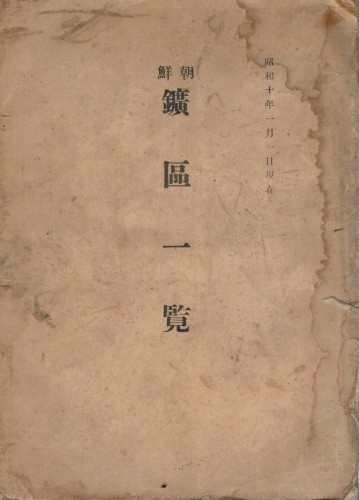 昭和十年一月一日現在
朝鮮
鑛區一覧